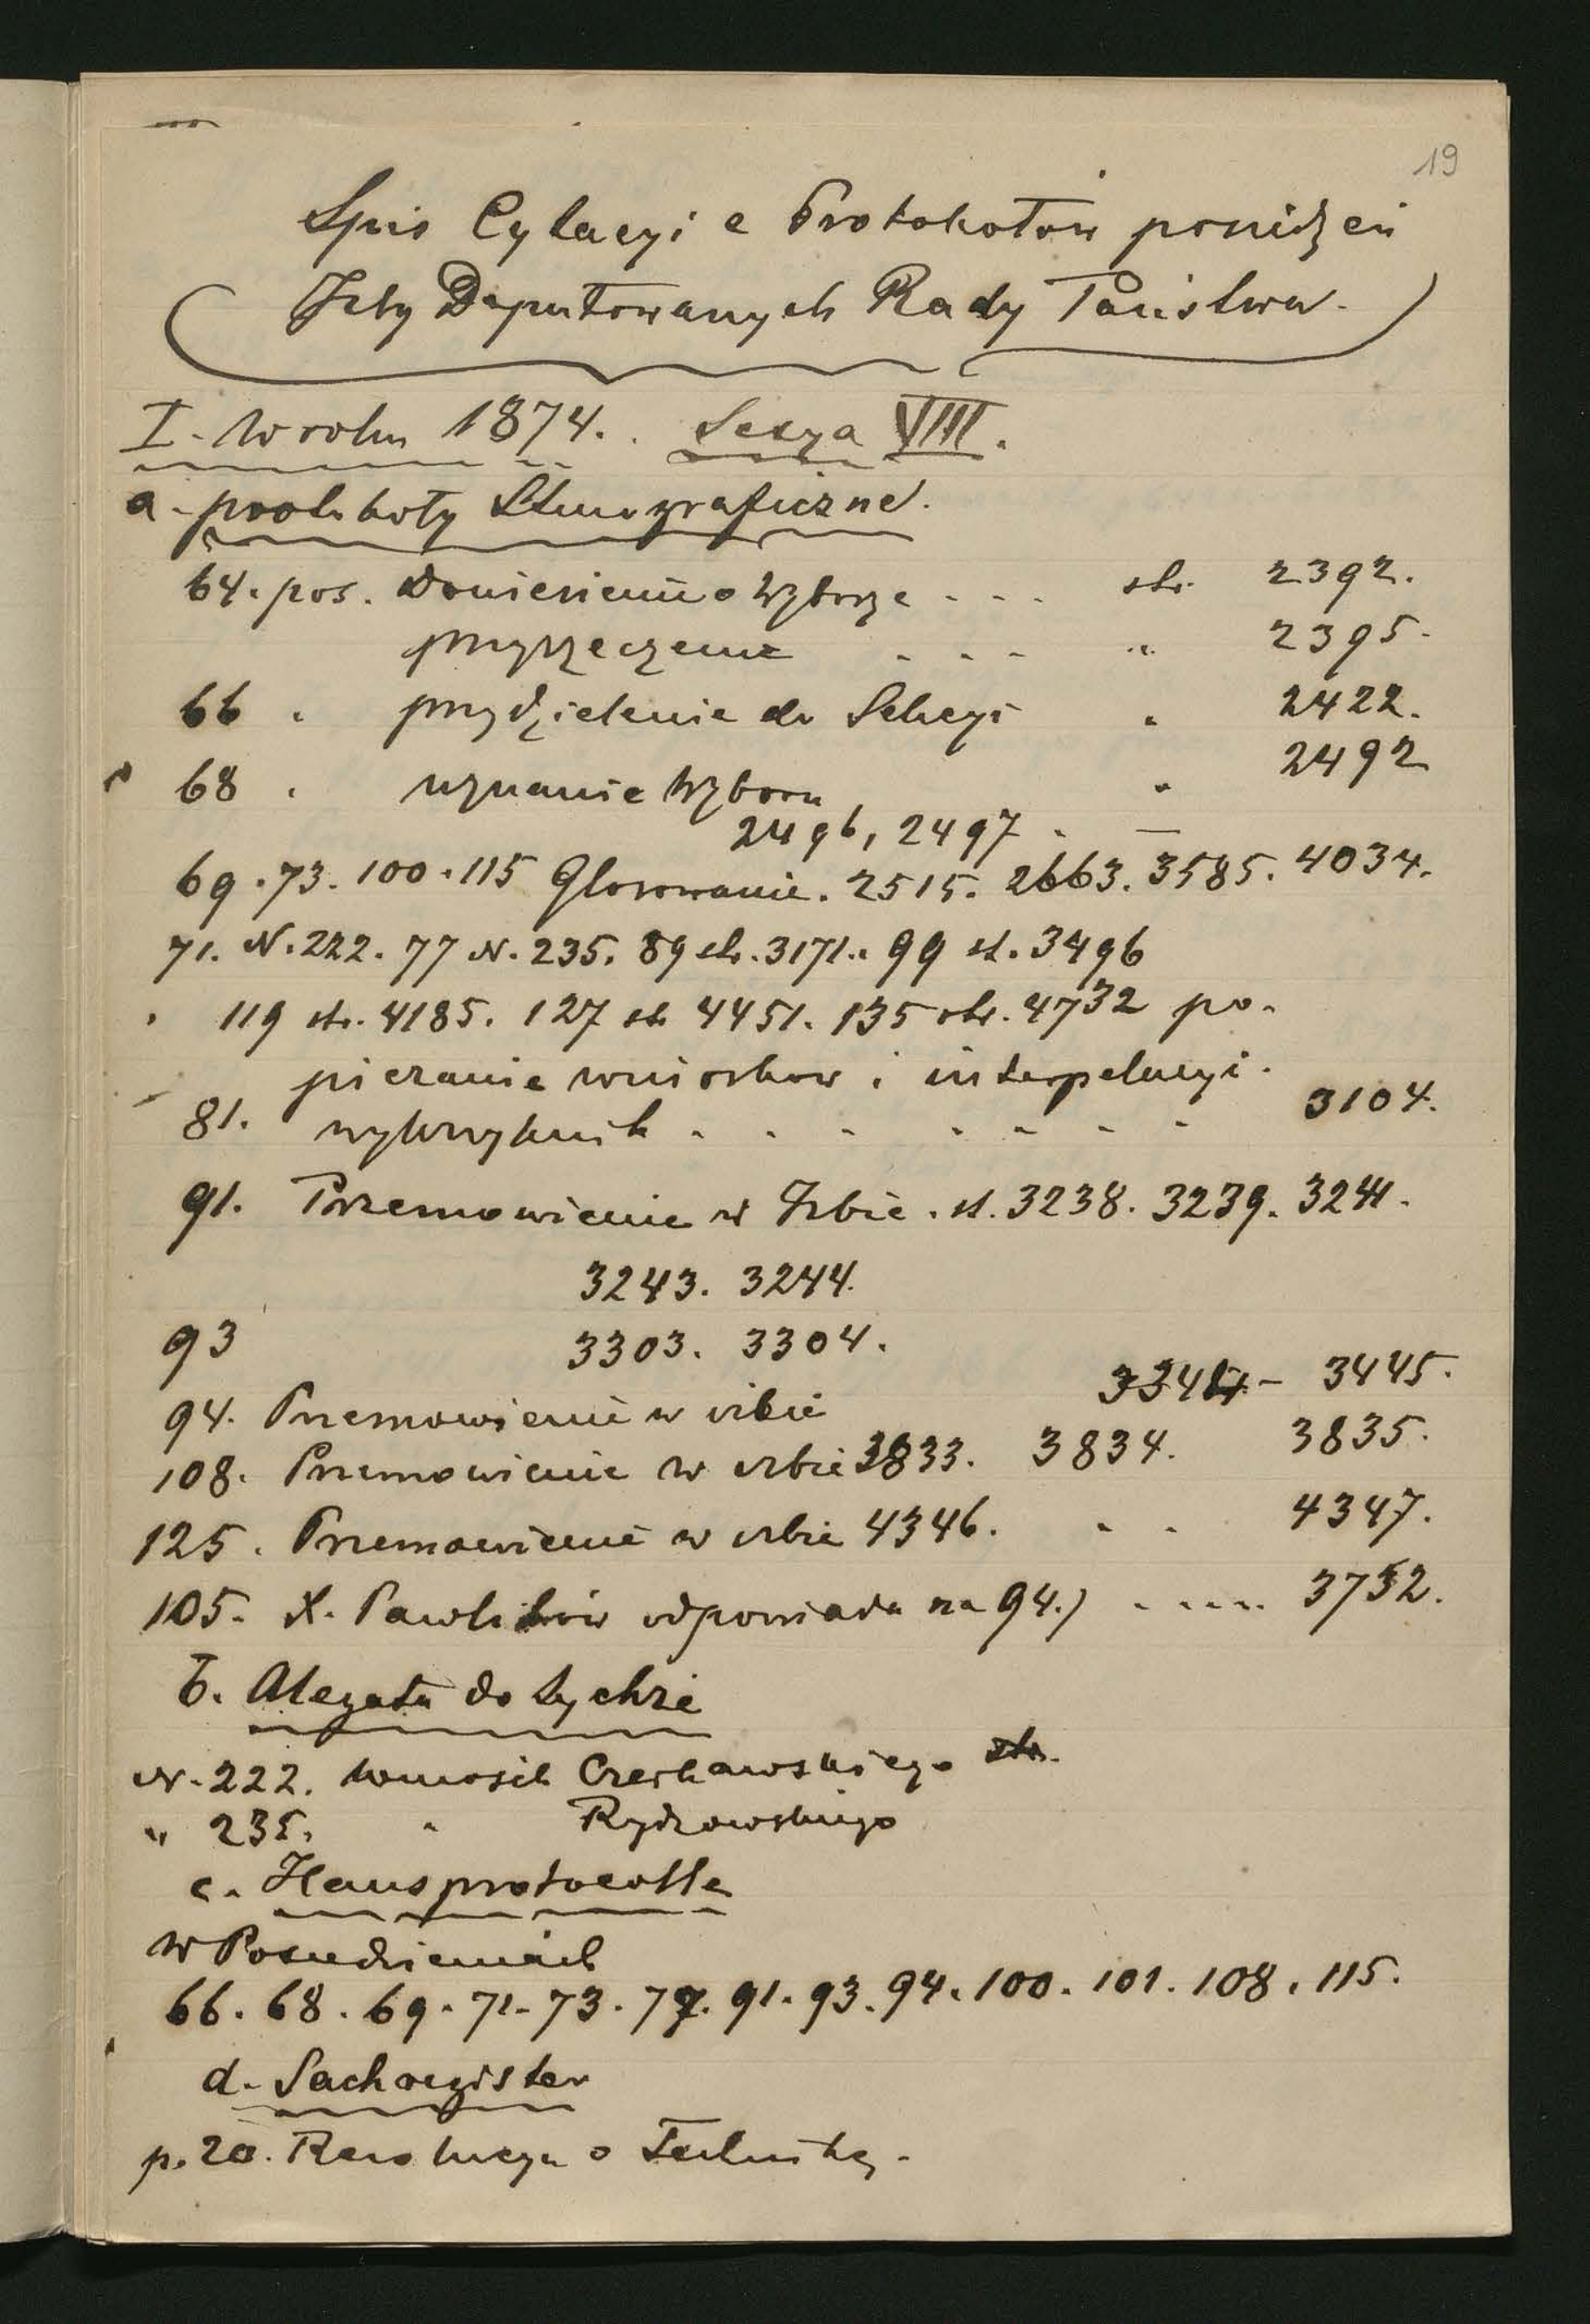 19
Spis Cytacyi z Protokołów posiedzeń
Izby Deputowanych Rady Państwa.
I. W roku 1874. Sesya VIII.
a. protokoły Stenograficzne.
64. pos. Doniesienie o Wyborze - - - str. 2392.
przyrzeczenie - - - " 2395.
66 " przydzielenie do Sekcyi " 2422.
68 " uznanie Wyboru " 2492
2496, 2497 . —
69. 73. 100. 115 Głosowanie. 2515. 2663. 3585. 4034.
71. N. 222. 77 N. 235. 89 str. 3171. 99 st. 3496
119 str. 4185. 127 str 4451. 135 str. 4732 po-
pieranie wniosków i interpelacyi.
81. wykrzyknik - - - - - - - 3104.
91. Przemowienie w Izbie. st. 3238. 3239. 3241.
3243. 3244.
93 3303. 3304.
94. Przemowienie w izbie - 3445.
108. Przemowienie w izbie 3833. 3834. 3835.
125. Przemowienie w izbie 4346. - - 4347.
105. X. Pawlików odpowiada na 94.) - - - - 3752.
b. Alegata do tychże
N. 222. wniosek Czerkawskiego str.
" 235. " Rydzowskiego
c. Hausprotocolle
w Posiedzeniach
66. 68. 69. 71. 73. 77. 91. 93. 94. 100. 101. 108. 115.
d. Sachregister
p. 20. Rezolucya o Technikę.